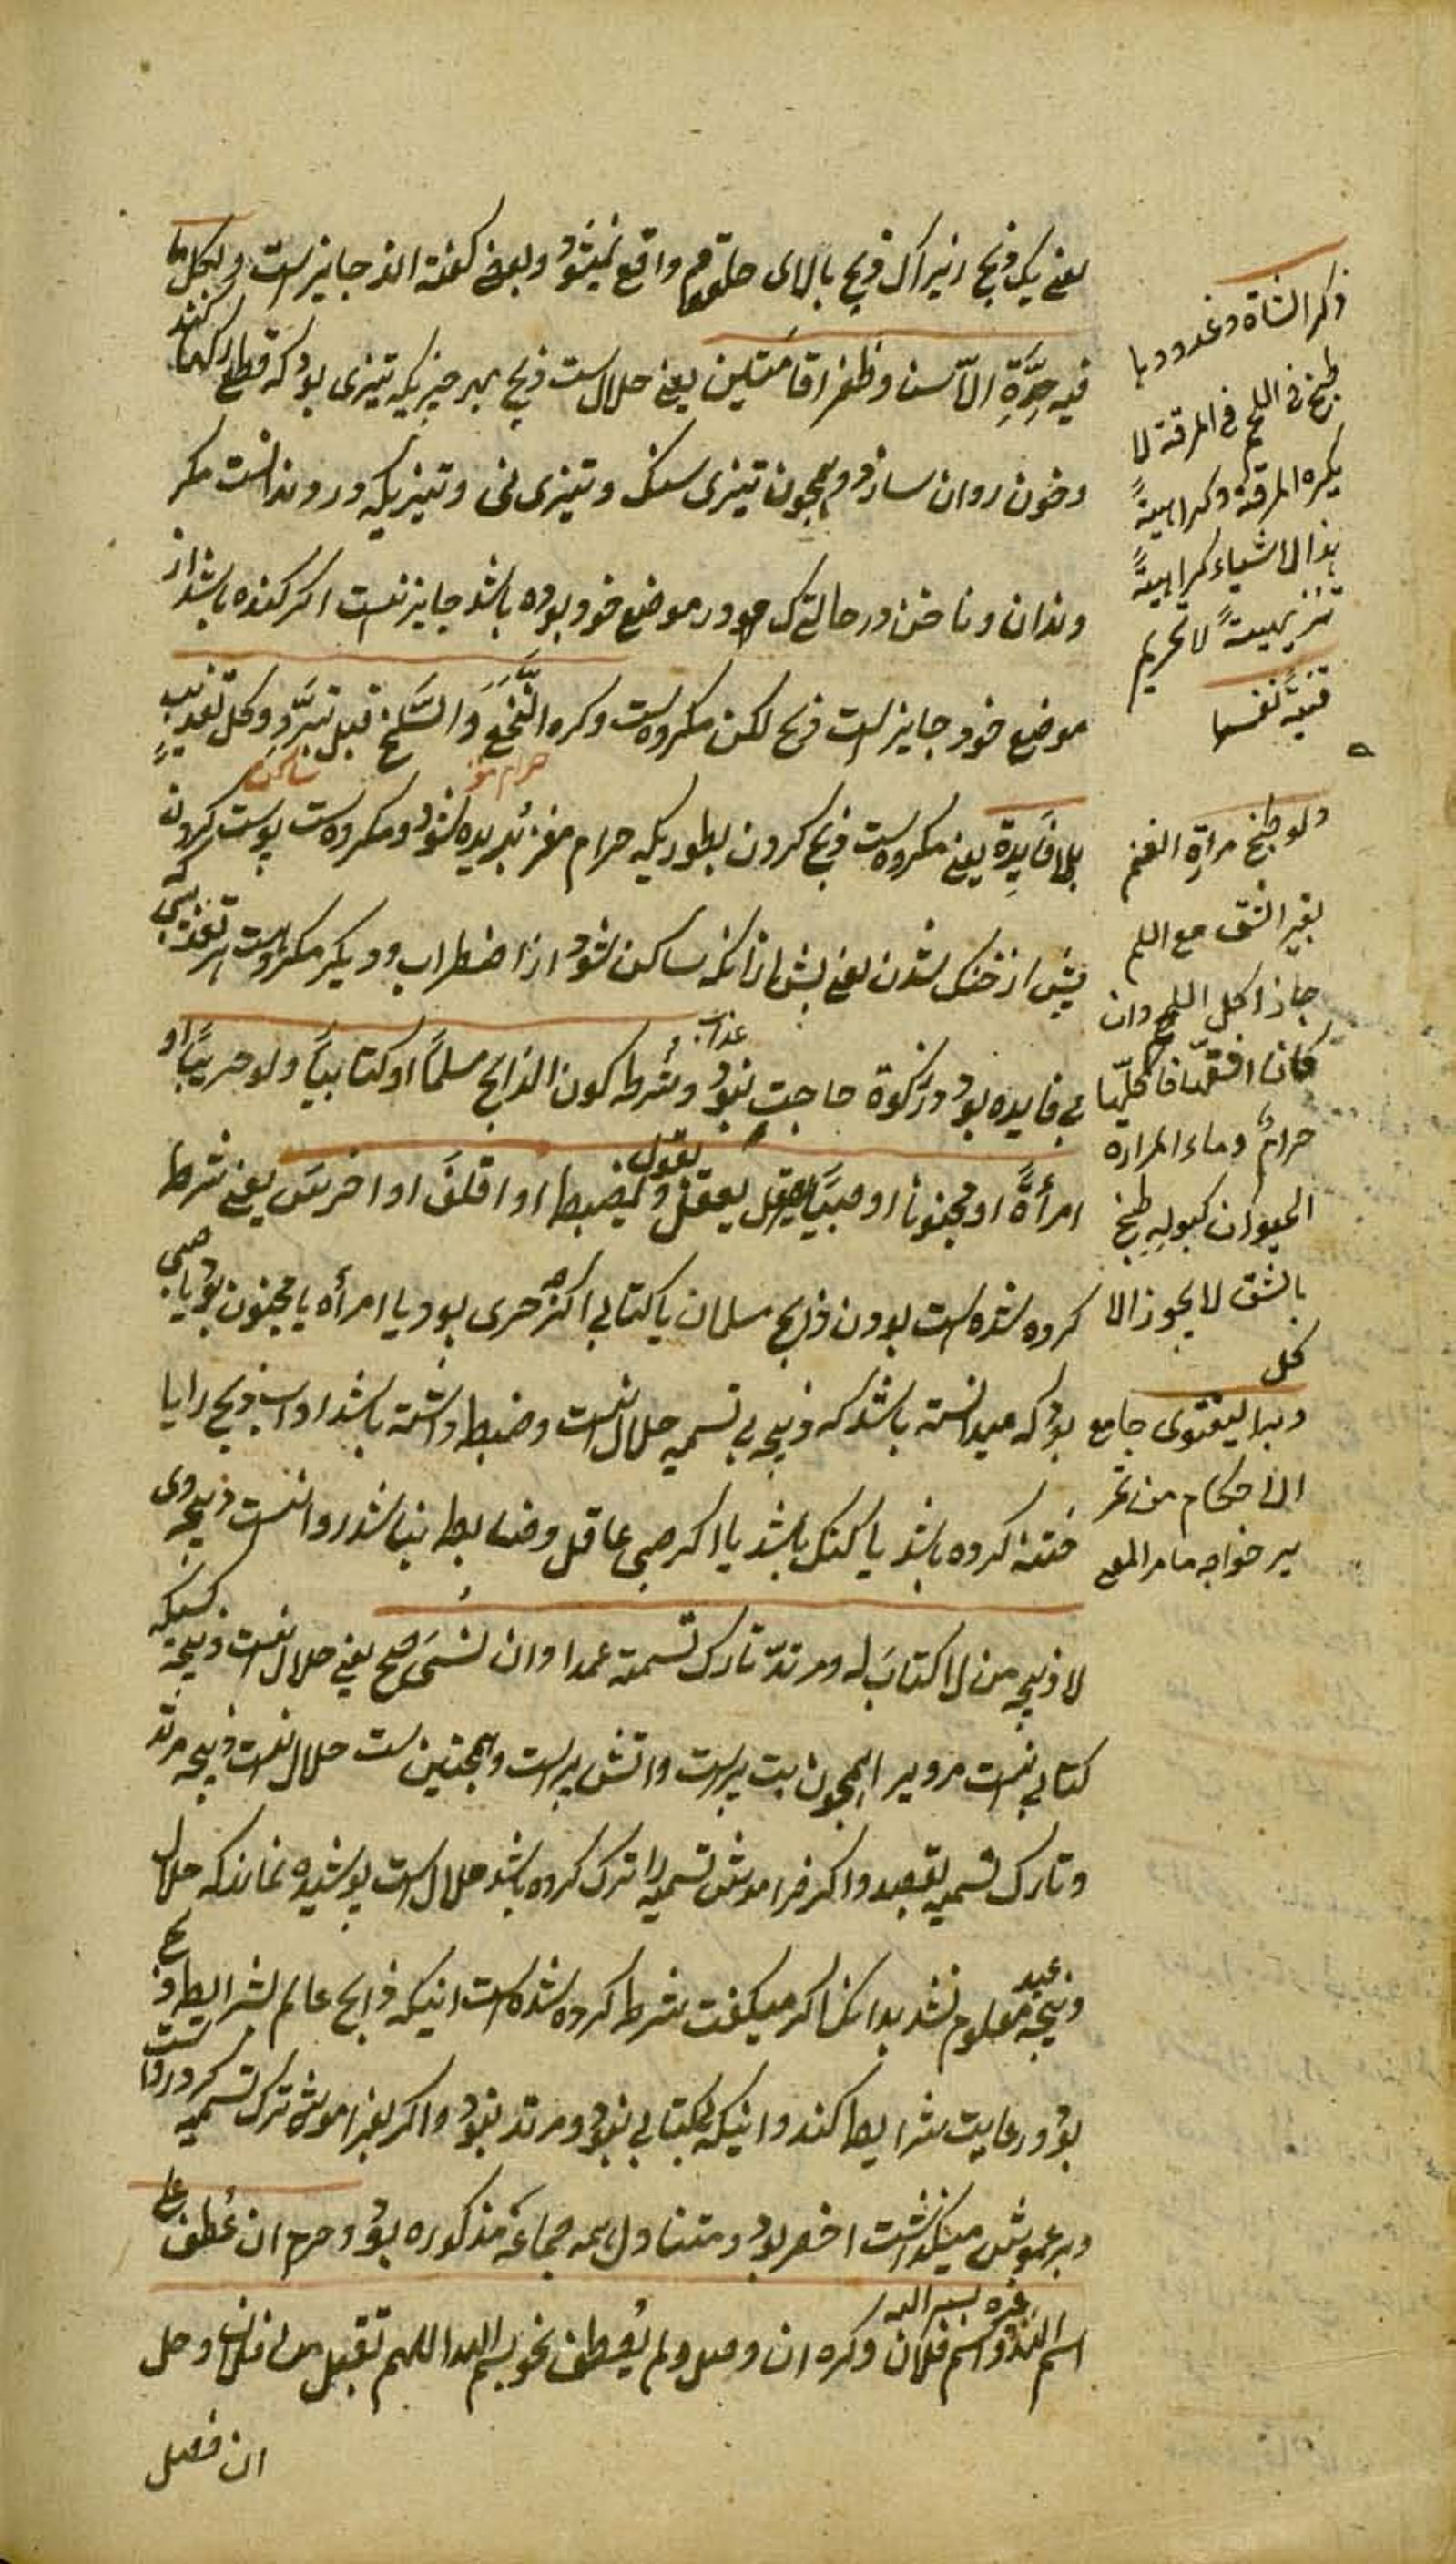 یعنی یک ذبح زیراک ذبح بالای حلقوم واقع نمیشود و بعضی گفته اند جایز است و بکل ما
فیه حِدَّةِ الّا سن و ظفر اقا مَتَلین یعنی حلال است ذبح بهر چیزیکه تیزی بود که قطع رکها کند
و خون روان سازد و همچون تیزی سنک و تیزی نی و تیزیکه در وندانست مکر
دندان و ناخن در حالتی که در موضع خود بوده باشد جایز نیست اکر کنده باشد از
موضع خود جایز است ذبح لکن مکروه است و کره النَّخَع وَ السَّلخ قبل تبرَّد و کل تعذیب
حرام مغز
بلا فَایِدِة یعنی مکروه است ذبح کردن بطوریکه حرام مغز بُریده شود و مکروه است پوست کردن
پیش از خنک شدن یعنی پیش از آنکه ساکن شود از اضطراب و دیکر مکروه است هر تعذیبی که
بی فایده بود در زکوة حاجت نبود و شرط کون الذابح مسلماً او کتابیاً ولو حربیاً او
امرأةً او مجنونا او صبیًا یعقل و یضبط او اقلفَ او اخرسَ یعنی شرط
کرده شده است بودن ذابح مسلمان یا کتابی اکرچه حربی بود یا امرأه یا مجنون بود یا صبی
بود که میدانسته باشد که ذبیحه بی تسمیه حلال نیست و ضبط داشته باشد اداب ذبح را یا
ختنه کرده باشد یا کنک باشد یا اکر صبی عاقل و ضابط نباشد روا نیست ذبیحه وی
لا ذبیحه من لا کتابَ له و مرتدّ تارک تسمیة عمدا و ان نسَی صح یعنی حلال نیست ذبیحه کسیکه
کتابی نیست مرویرا همچون بت پرست و اتش پرست و همچنین است حلال نیست ذبیحه مرتد
و تارک تسمیه بقصد و اکر فراموش تسمیه را ترک کرده باشد حلال است پوشیده نماند که حلال
ذبیحه معلوم نشد بدانک اکر میکفت شرط کرده شده است اینکه ذابح عالم بشرایط ذبح
بود و رعایت شرایط کند و اینکه کتابی نبود و مرتد نبود و اکر بفراموش ترک تسمیه کرد روا است
اخصر بود و متناول همه جماعه مذکوره بود و حرم ان عُطف علی
اسم الله غیره بسم الله و اسم فلان و کره ان وصل و لم یُعطف نحو بسم الله اللهم تقبل من فلان و حل
ان فصل
ذکر الشاة و غدودها
طبخ فی اللحم فی المرقة لا
یکره المرقة و کراهیةً
هذا الاشیاء کراهیةً
تنزیهیةً لا تحریم
قنیه
ولو طبخ مرارة الغنم
بغیر الشق مع اللحم
جاز اکل اللحم و ان
حرامٌ و ماء المراره
الحیوان کبوله طبخ
بالشق لا یجوز الا
کل
جامع
الاحکام من